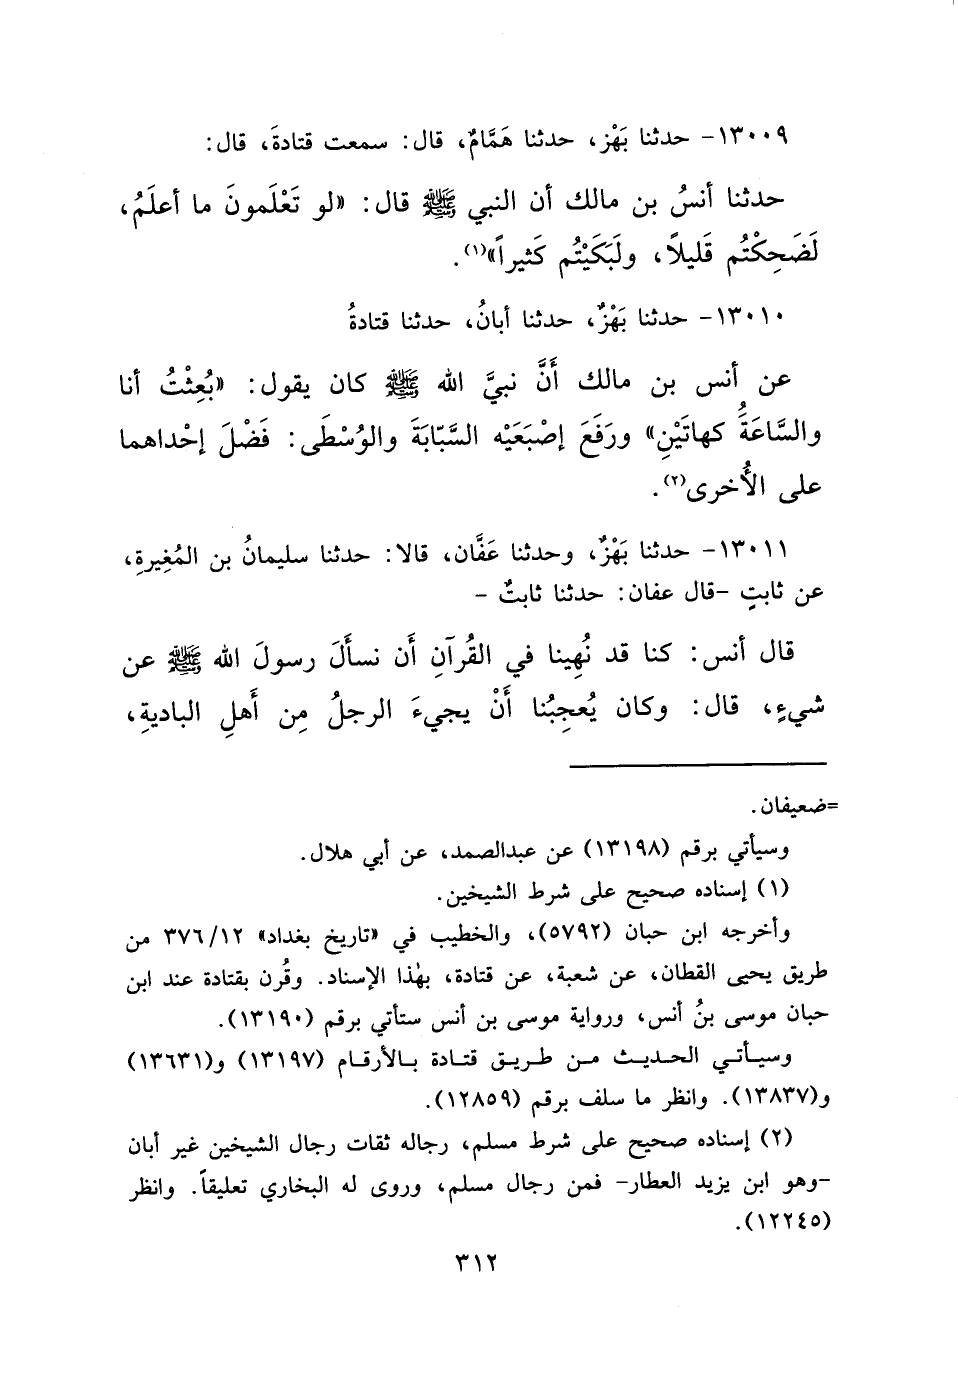 ١٣٠٠٩- حدثنا بَهْز، حدثنا هَمَّامٌ، قال: سمعت قتادةَ، قال:
حدثنا أنسُ بن مالك أن النبي ﷺ قال: «لو تَعْلَمونَ ما أعلَمُ،
لَضَحِكْتُم قَليلاً، ولَبَكَيْتُم كَثيراً»(١).
١٣٠١٠- حدثنا بَهْزٌ، حدثنا أبانُ، حدثنا قتادةُ
عن أنس بن مالك أَنَّ نبيَّ الله ﷺ كان يقول: «بُعِثْتُ أنا
والسَّاعَةَُ كهاتَيْنِ» ورَفَعَ إصْبَعَيْه السَّبّابَةَ والوُسْطَى: فَضْلَ إحْداهما
على الأُخرى(٢).
١٣٠١١- حدثنا بَهْزٌ، وحدثنا عَفَّان، قالا: حدثنا سليمانُ بن المُغِيرةِ،
عن ثابتٍ -قال عفان: حدثنا ثابتٌ -
قال أنس: كنا قد نُهِينا في القُرآنِ أَن نسأَلَ رسولَ الله ﷺ عن
شيءٍ، قال: وكان يُعجِبُنا أَنْ يجيءَ الرجلُ مِن أَهلِ الباديةِ،
=ضعيفان.
وسيأتي برقم (١٣١٩٨) عن عبدالصمد، عن أبي هلال.
(١) إسناده صحيح على شرط الشيخين.
وأخرجه ابن حبان (٥٧٩٢)، والخطيب في «تاريخ بغداد» ٣٧٦/١٢ من
طريق يحيى القطان، عن شعبة، عن قتادة، بهٰذا الإسناد. وقُرن بقتادة عند ابن
حبان موسى بنُ أنس، ورواية موسى بن أنس ستأتي برقم (١٣١٩٠).
وسيأتي الحديث من طريق قتادة بالأرقام (١٣١٩٧) و(١٣٦٣١)
و(١٣٨٣٧). وانظر ما سلف برقم (١٢٨٥٩).
(٢) إسناده صحيح على شرط مسلم، رجاله ثقات رجال الشيخين غير أبان
-وهو ابن يزيد العطار- فمن رجال مسلم، وروى له البخاري تعليقاً. وانظر
(١٢٢٤٥).
٣١٢